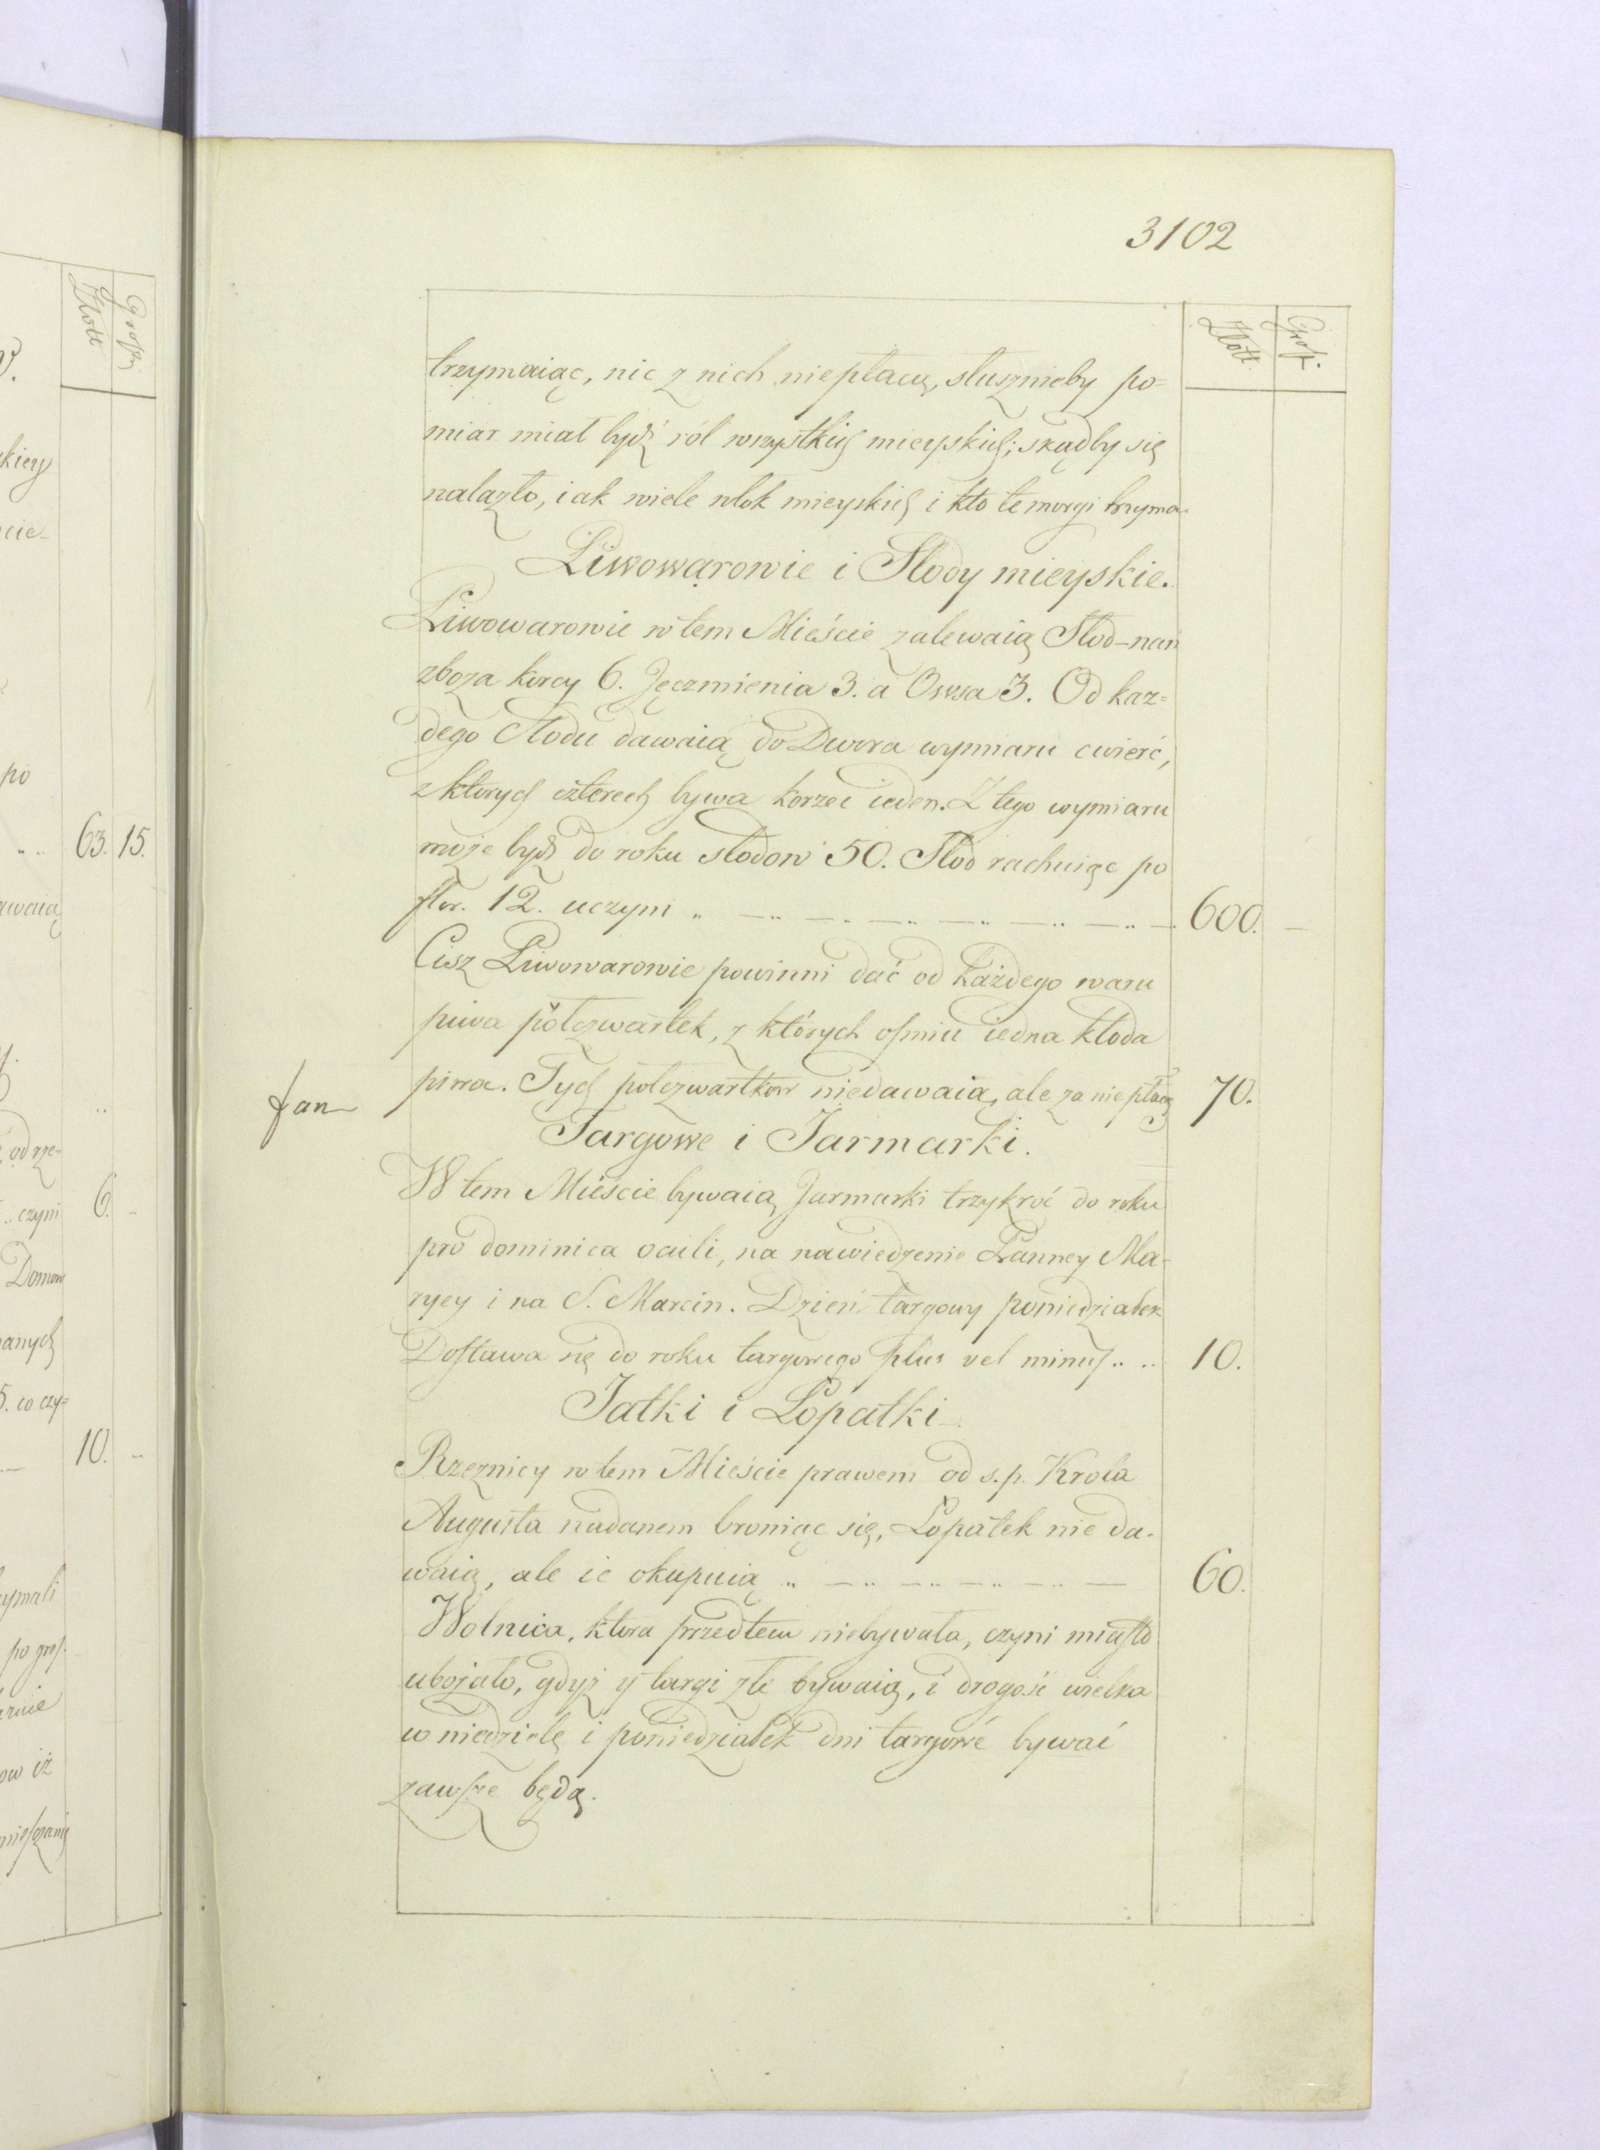 3102
Złott. Grosz.
trzymaiąc, nic z nich niepłacą, słusznieby po=
miar miał bydź ról wszystkich mieyskich; skądby się
nalazło, iak wiele włok mieyskich i kto te morgi trzyma.
Piwowarowie i Słody mieyskie.
Piwowarowie w tem Mieście zalewaią Słod - nań
zboza korcy 6. Jęczmienia 3. a Owsa 3. Od kaz=
dego Słodu dawaią do Dwora wymiaru cwierć,
z ktorych czterech bywa korzec ieden. Z tego wymiaru
może bydź do roku słodow 50. Słod rachuiąc po
flor. 12. uczyni 600. —
Cisz Piwowarowie powinni dać od każdego waru
piwa półczwartek, z których ośmiu iedna kłoda
piwa. Tych półczwartkow niedawaią, ale za nie płacą 70.
Jan
Targowe i Jarmarki.
W tem Mieście bywaią Jarmarki trzykroć do roku
pro dominica oculi, na nawiedzenie Panney Ma-
ryey i na S. Marcin. Dzień targowy poniedziałek
Dostawa się do roku targowego plus vel minus 10.
Jatki i Łopatki
Rzeznicy w tem Mieście prawem od s. p. Krola
Augusta nadanem broniąc się, Łopatek nie da-
waią, ale ie okupuią 60.
Wolnica, ktora przedtem niebywała, czyni miasto
ubożało, gdyż y targi złe bywaią, i drogość wielka
w niedzielę i poniedziałek dni targowé bywać
zawsze będą.
Złott Grosz
63. 15.
6.
10.
po
Domow
5. co czy=
czyni